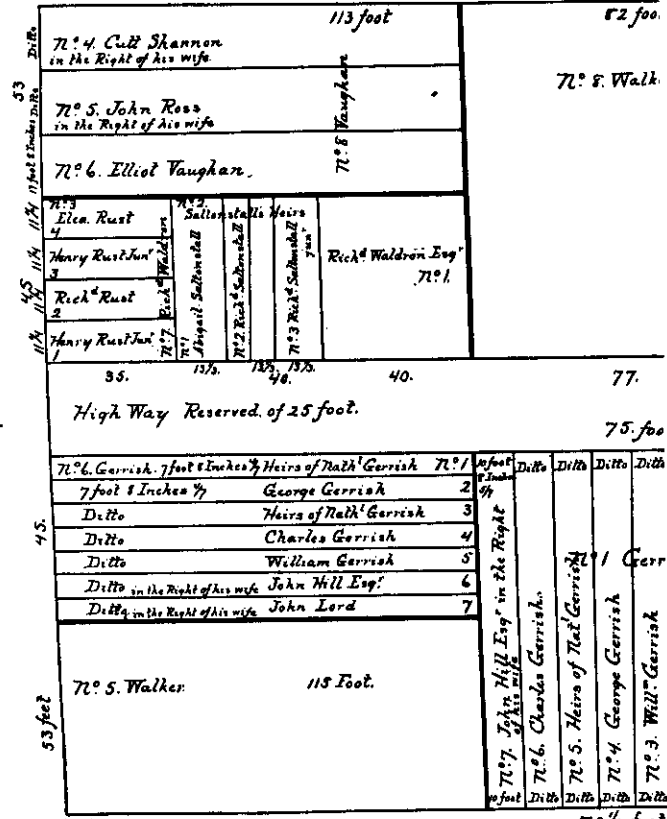 113 foot
82 foo
Ditto
Nº 4. Cutt Shannon
in the Right of his wife
Nº 8. Walk
53
Ditto
Nº 5. John Ross
in the Right of his wife
Nº 8 Vaughan
17 foot 8 Inches
Nº 6. Elliot Vaughan.
Nº 3
Nº 2.
Saltonstall's Heirs
11¼
Elea. Rust
4
11¼
Henry Rust Junr
3
45
11¼
Richd Rust
2
11¼
Henry Rust Junr
1
Nº 7. Richd Waldron
Nº 1
Abigail Saltonstall
Nº 2. Richd Saltonstall
Nº 3 Richd Saltonstall
junr
Richd Waldron Esqr
Nº 1.
13⅓.
13⅓.
13⅓.
35.
40.
40.
77.
High Way Reserved. of 25 foot.
75. foo
Nº 6. Gerrish. 7 foot 8 Inches 4/7 Heirs of Nathl Gerrish Nº 1
7 foot 8 Inches 4/7 George Gerrish 2
Ditto Heirs of Nathl Gerrish 3
Ditto Charles Gerrish 4
Ditto William Gerrish 5
Ditto in the Right of his wife John Hill Esqr 6
Ditto in the Right of his wife John Lord 7
45.
10 foot
8 Inches
5/7
Ditto
Ditto
Ditto
Ditto
Nº 1 Gerr
Nº 7. John Hill Esqr in the Right
of his wife
Nº 6. Charles Gerrish.
Nº 5. Heirs of Natl Gerrish
Nº 4. George Gerrish
Nº 3. Willm Gerrish
Nº 5. Walker.
115 Foot.
53 feet
10 foot
Ditto
Ditto
Ditto
Ditto